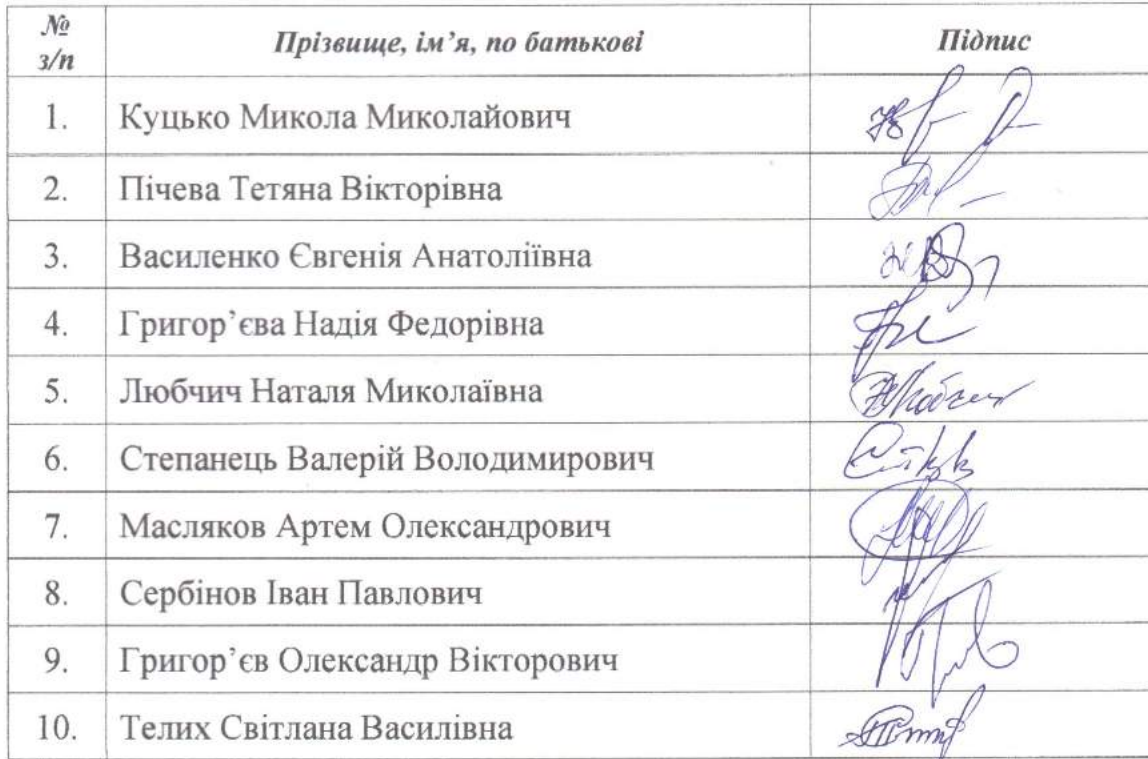 № з/п Прізвище, ім’я, по батькові Підпис
1. Куцько Микола Миколайович
2. Пічева Тетяна Вікторівна
3. Василенко Євгенія Анатоліївна
4. Григор’єва Надія Федорівна
5. Любчич Наталя Миколаївна
6. Степанець Валерій Володимирович
7. Масляков Артем Олександрович
8. Сербінов Іван Павлович
9. Григор’єв Олександр Вікторович
10. Телих Світлана Василівна